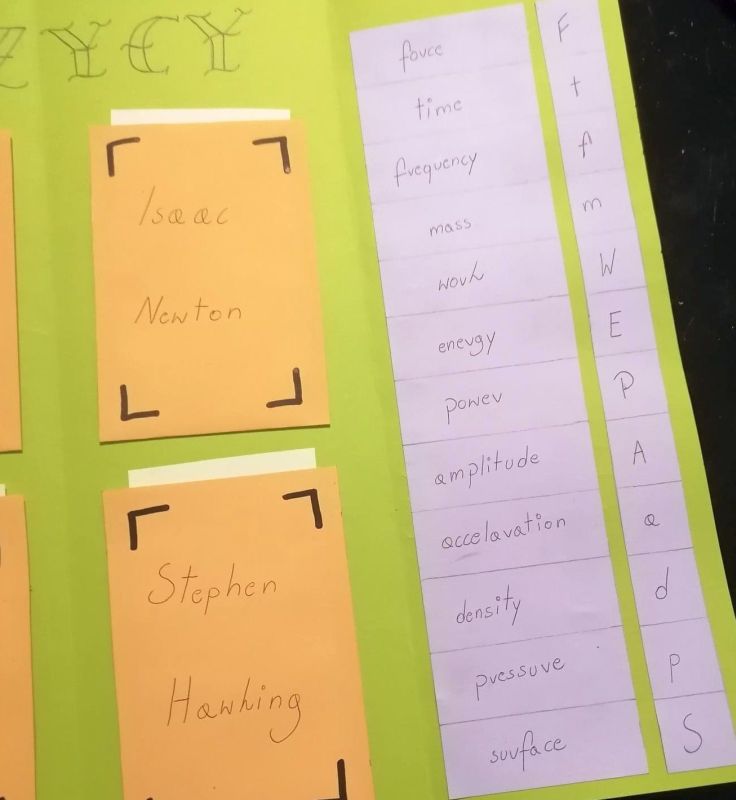 ZYCY
Isaac
Newton
Stephen
Hawking
force F
time t
frequency f
mass m
work W
energy E
power P
amplitude A
accelaration a
density d
pressure p
surface S